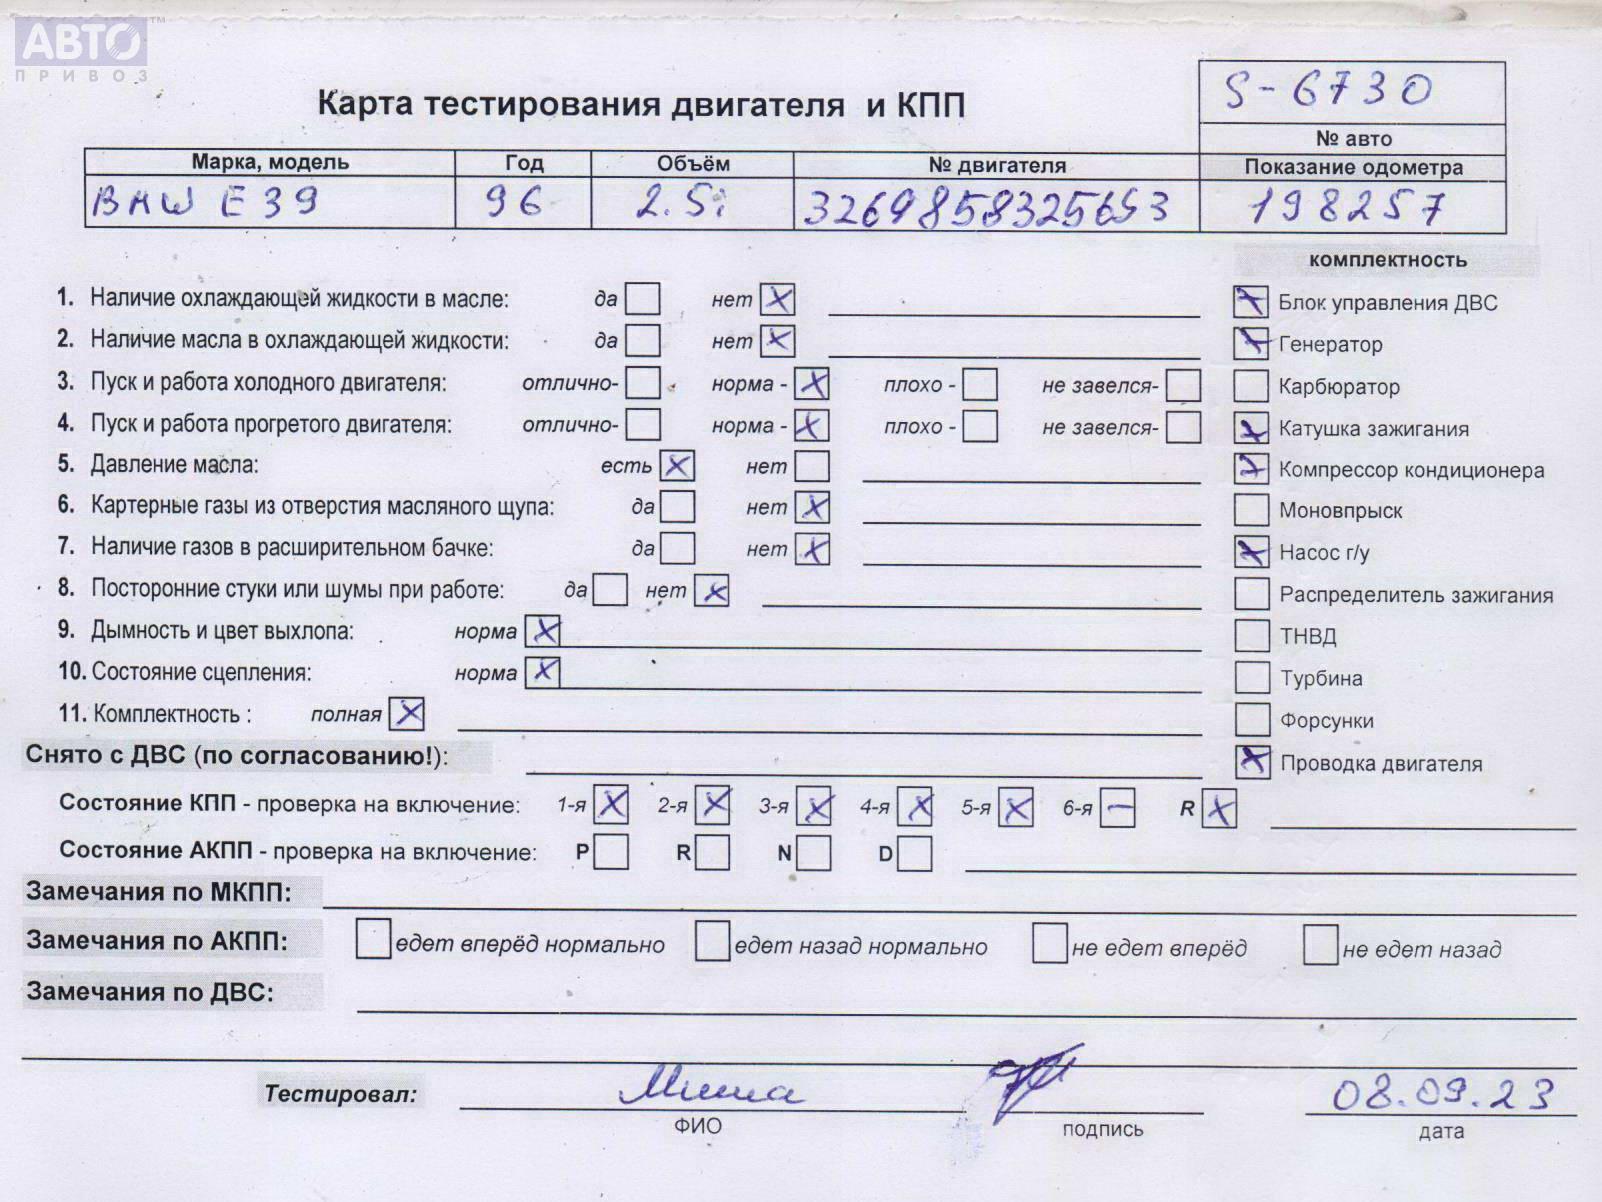 АВТО
ПРИВОЗ
S-6730
Карта тестирования двигателя и КПП
№ авто
Марка, модель Год Объём № двигателя Показание одометра
BMW E39 96 2.5i 198257
комплектность
1. Наличие охлаждающей жидкости в масле: да нет Блок управления ДВС
2. Наличие масла в охлаждающей жидкости: да нет Генератор
3. Пуск и работа холодного двигателя: отлично- норма - плохо - не завелся- Карбюратор
4. Пуск и работа прогретого двигателя: отлично- норма - плохо - не завелся- Катушка зажигания
5. Давление масла: есть нет Компрессор кондиционера
6. Картерные газы из отверстия масляного щупа: да нет Моновпрыск
7. Наличие газов в расширительном бачке: да нет Насос г/у
8. Посторонние стуки или шумы при работе: да нет Распределитель зажигания
9. Дымность и цвет выхлопа: норма ТНВД
10. Состояние сцепления: норма Турбина
11. Комплектность : полная Форсунки
Снято с ДВС (по согласованию!): Проводка двигателя
Состояние КПП - проверка на включение: 1-я 2-я 3-я 4-я 5-я 6-я R
Состояние АКПП - проверка на включение: P R N D
Замечания по МКПП:
Замечания по АКПП: едет вперёд нормально едет назад нормально не едет вперёд не едет назад
Замечания по ДВС:
Тестировал: Миша 08.09.23
ФИО подпись дата